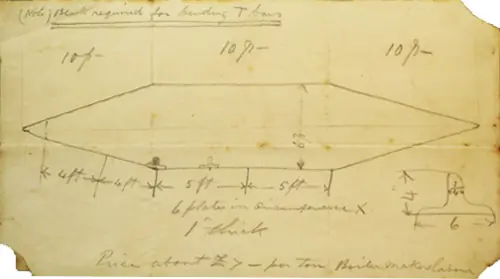 (Note) Beak required for bending T bars
10 p- 10 p- 10 p-
6'3
4 ft 4 ft 5 ft 5 ft
6 plates in circumference X
1" thick
4
6
Price about £7 – per ton Boiler Makers labour